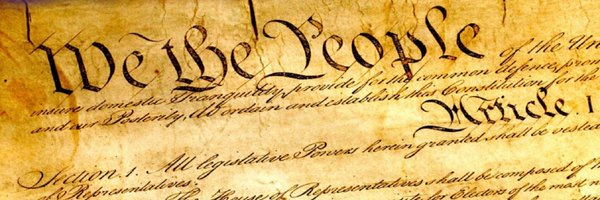 We the People of the Un
insure domestic Tranquility, provide for the common defence, prom
and our Posterity, do ordain and establish this Constitution for the
Article. I
Section. 1. All legislative Powers herein granted shall be vested
of Representatives.
The House of Representatives shall be composed of
for Electors of the most n